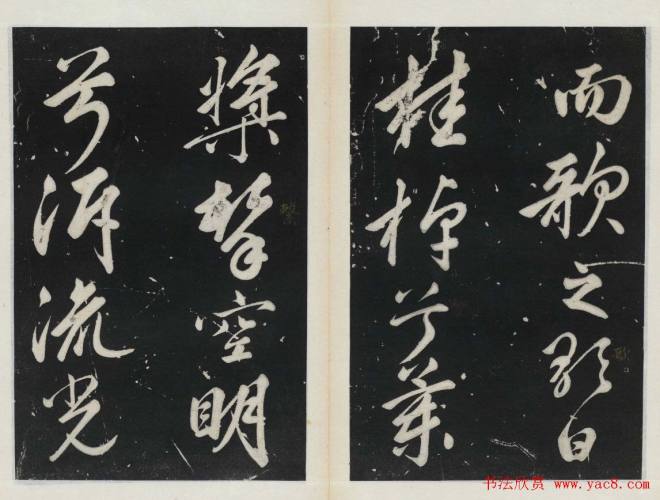 而歌之歌曰
桂棹兮蘭
槳擊空明
兮泝流光
书法欣赏 www.yac8.com